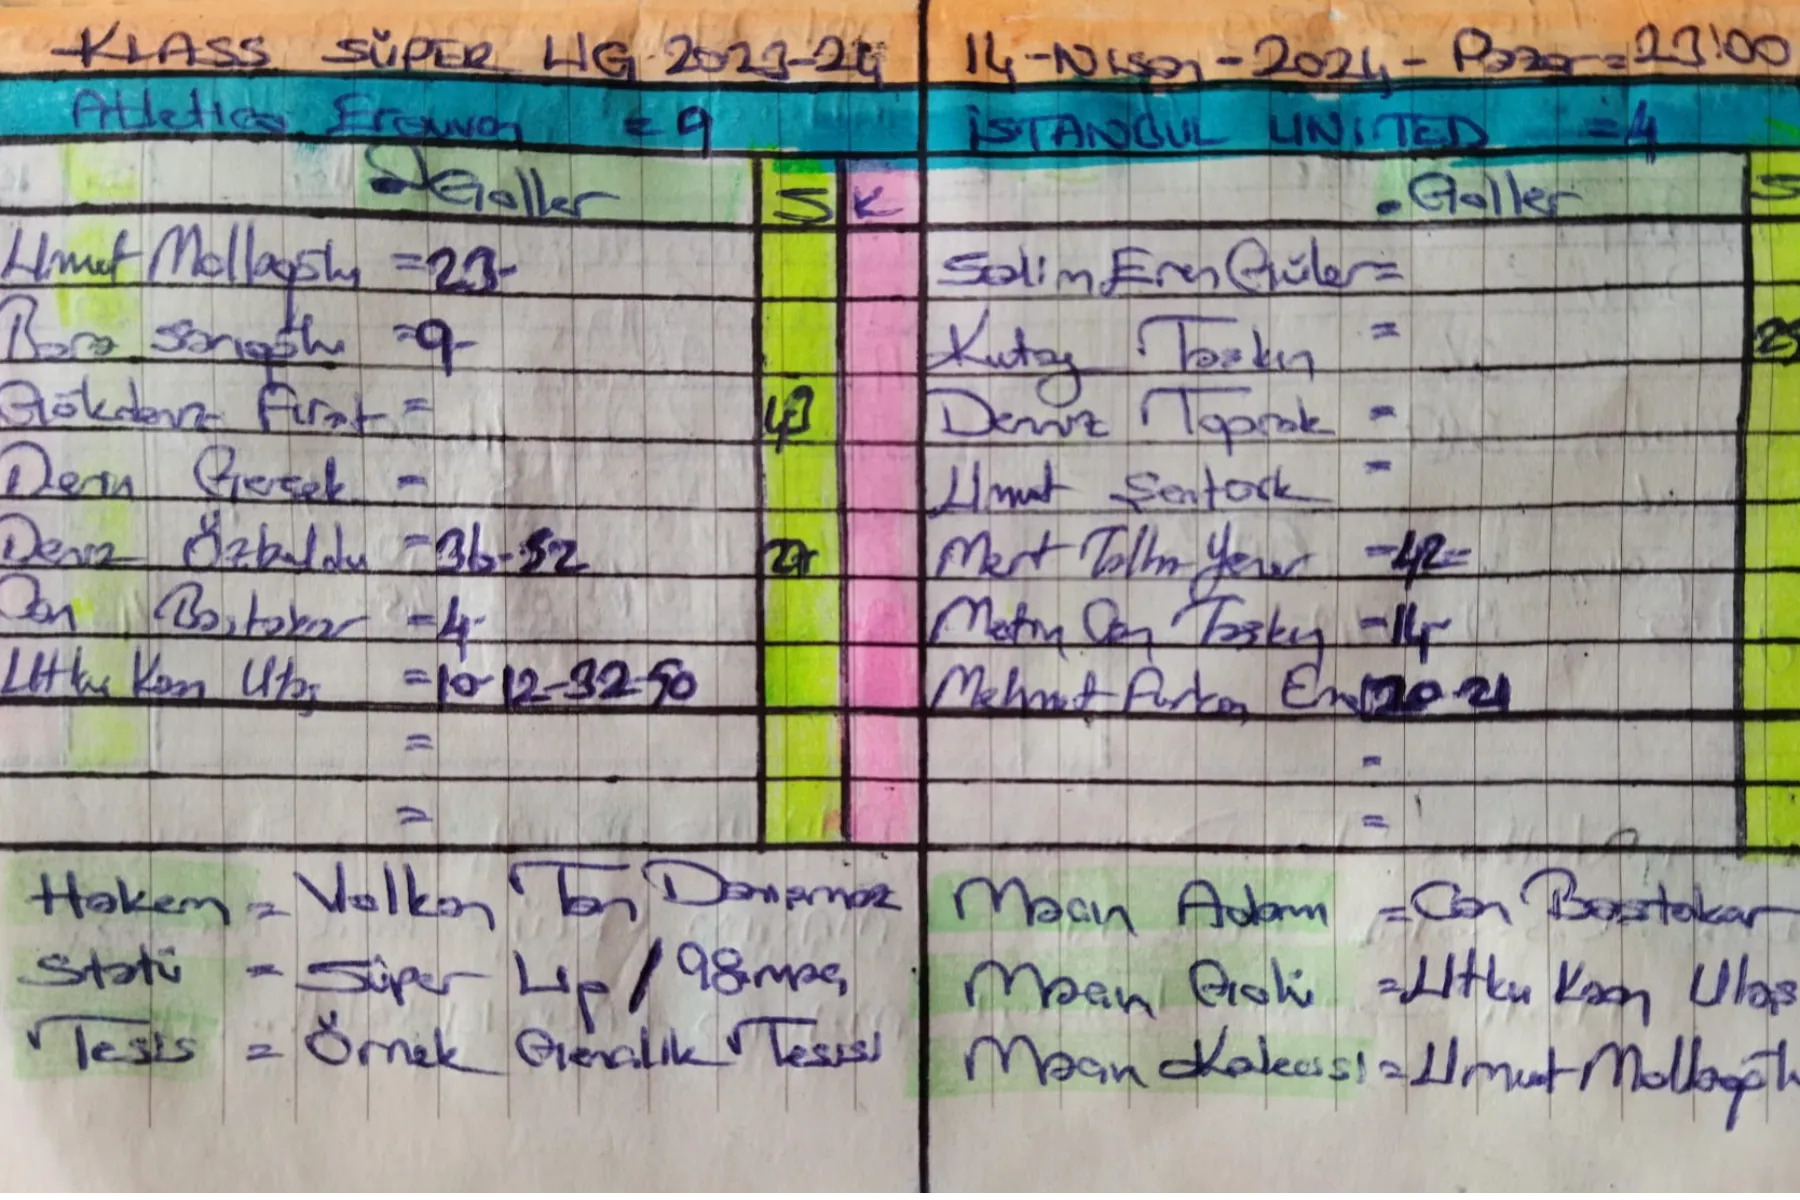 KLASS SÜPER LİG 2023-24
Atletico Erguvan = 9
Goller S K
Umut Mollaoğlu = 23-
Bora Sarıoğlu = 9-
Gökdeniz Fırat = 43
Derin Gerçek =
Deniz Özbuldu = 36-52
Can Bastakar = 4-
Utku Kaan Ulaş = 10-12-32-50
=
=
Hakem = Volkan Tan Dönmez
Statü = Süper Lig / 98.maç
Tesis = Örnek Gençlik Tesisi
14-Nisan-2024-Pazar=23:00
İSTANBUL UNITED = 4
.Goller S
Selim Eren Güler =
Kutay Taşkın = 25
Deniz Toprak =
Umut Şentürk =
Mert Talha Yener = 42=
Metin Can Taşkın = 14-
Mehmet Furkan 20-21
=
=
Maçın Adamı = Can Bastakar
Maçın Golü = Utku Kaan Ulaş
Maçın Kalecisi = Umut Mollaoğlu